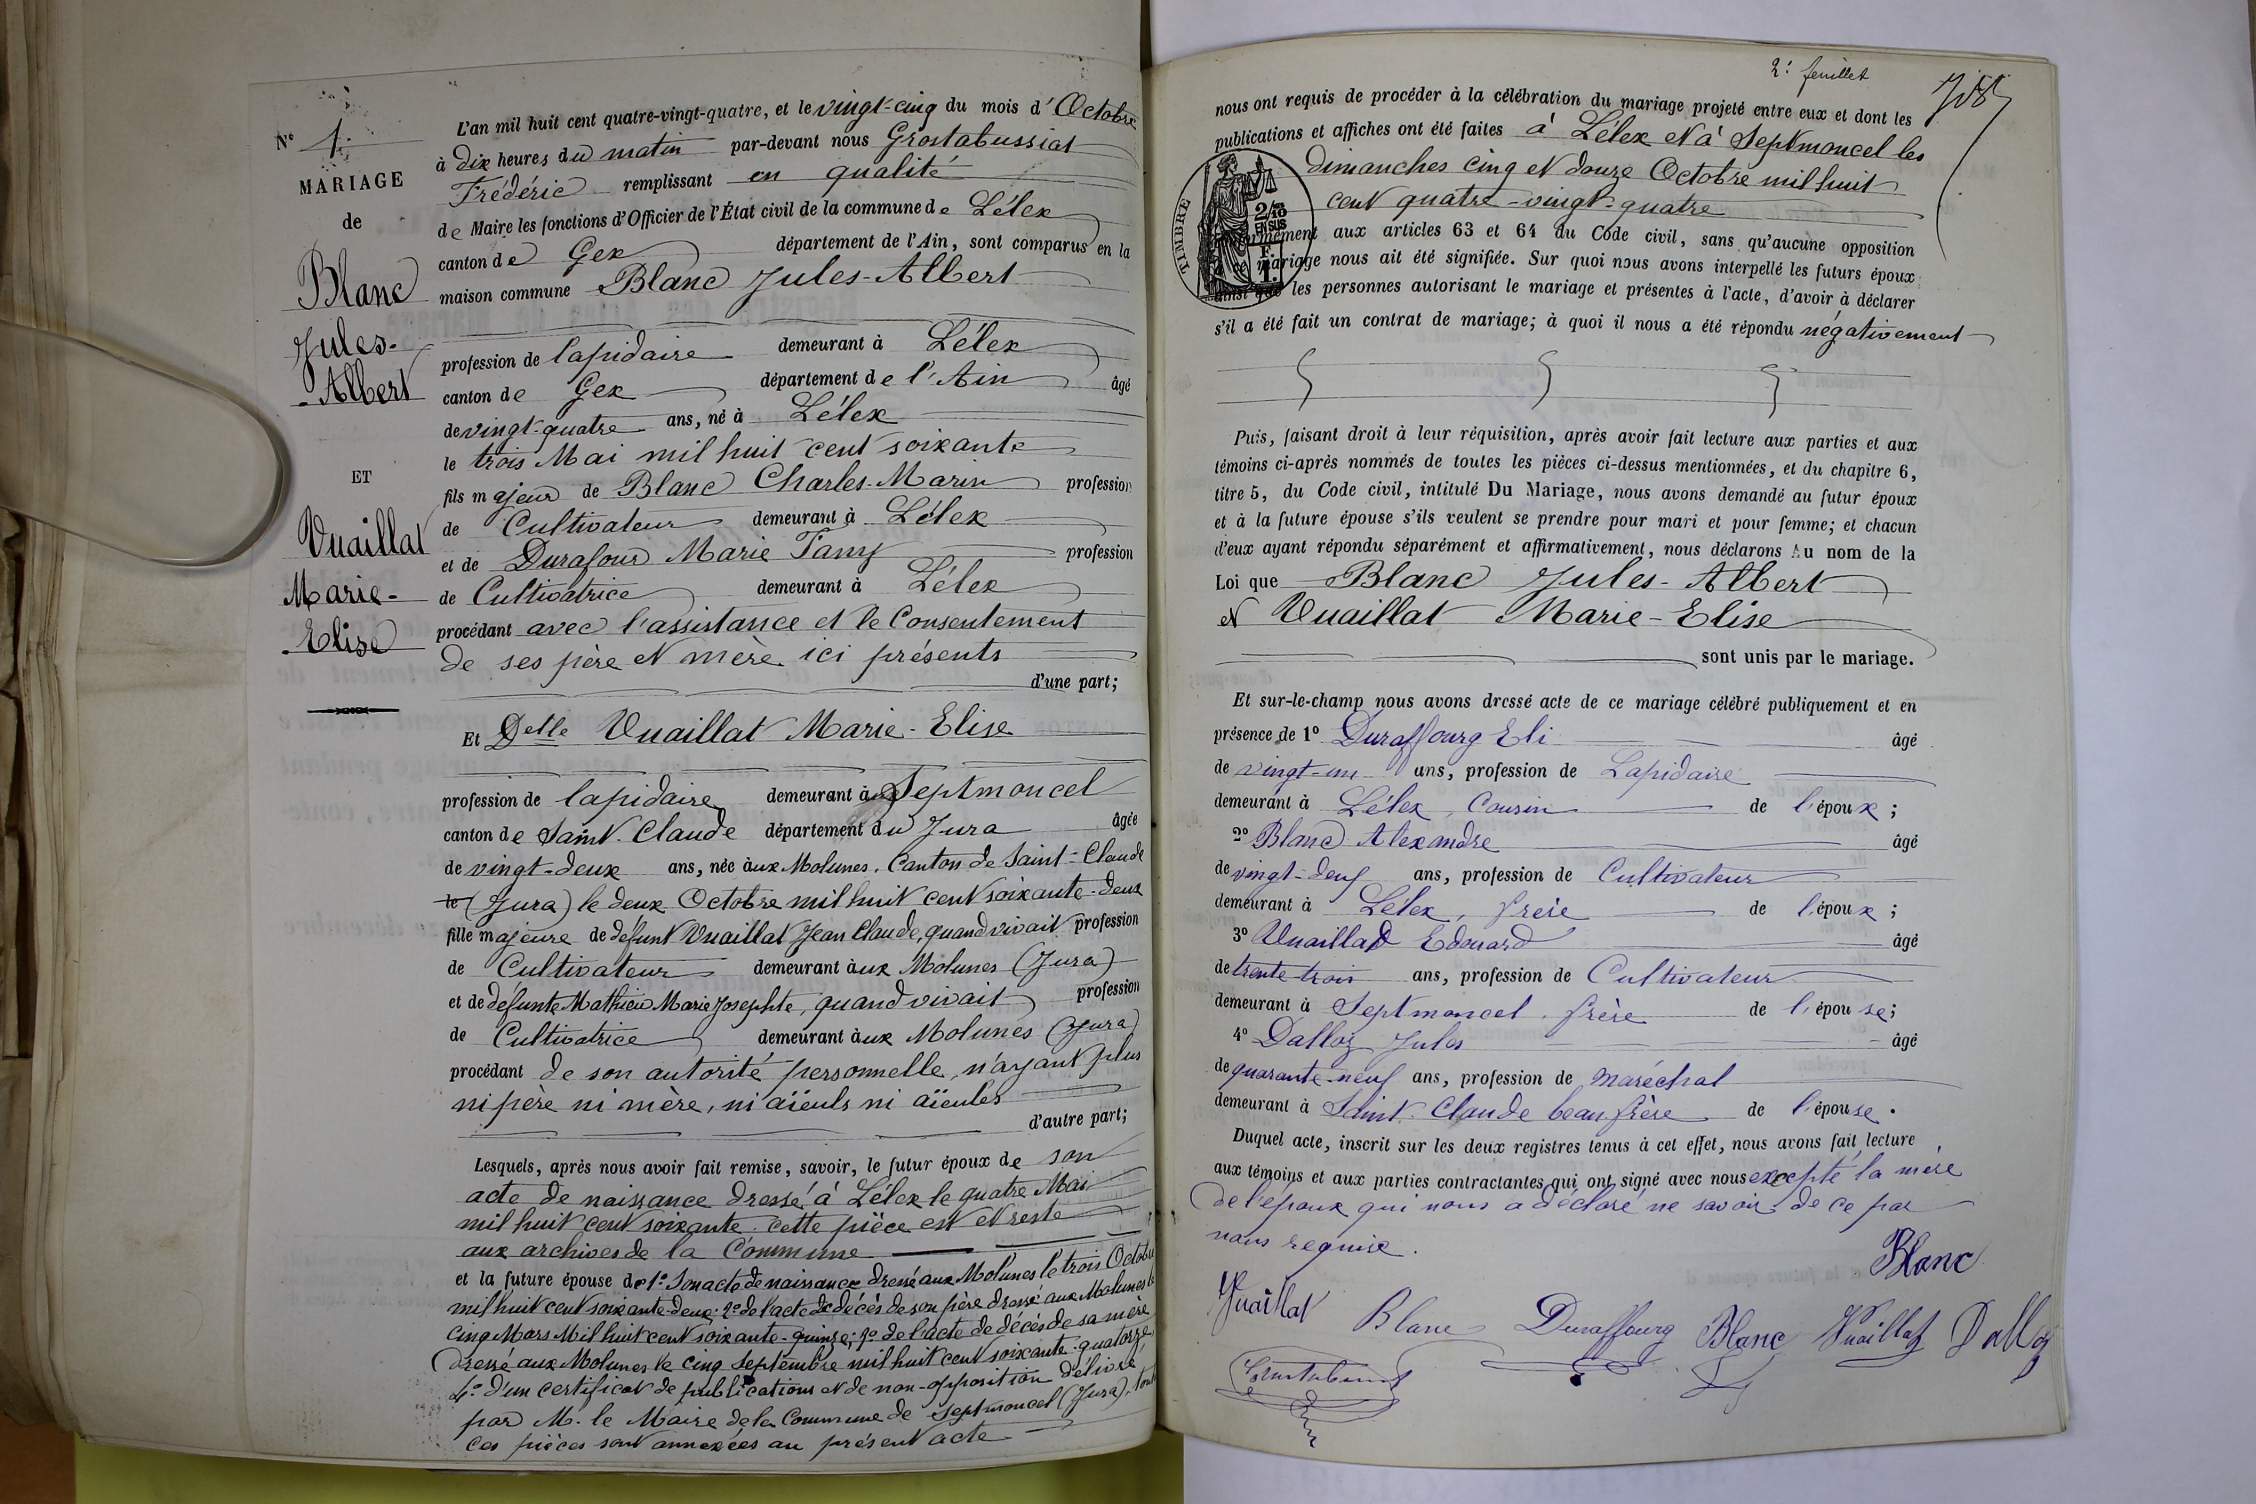 N° 1.
MARIAGE
de
Blanc
Jules-
Albert
ET
Vuaillat
Marie-
Elise
L'an mil huit cent quatre-vingt-quatre, et le vingt-cinq du mois d'Octobre
à dix heures du matin par-devant nous Grostabussiat
Frédéric remplissant en qualité
de Maire les fonctions d'Officier de l'État civil de la commune de Lélex
canton de Gex département de l'Ain, sont comparus en la
maison commune Blanc Jules-Albert
profession de lapidaire demeurant à Lélex
canton de Gex département de l'Ain âgé
de vingt-quatre ans, né à Lélex
le trois Mai mil huit cent soixante
fils majeur de Blanc Charles-Marin profession
de Cultivateur demeurant à Lélex
et de Durafour Marie Fany profession
de Cultivatrice demeurant à Lélex
procédant avec l'assistance et le Consentement
de ses père et mère ici présents
d'une part;
Et Delle Vuaillat Marie-Elise
profession de lapidaire demeurant à Septmoncel
canton de Saint-Claude département du Jura âgée
de vingt-deux ans, née aux Molunes, Canton de Saint-Claude
le (Jura) le deux Octobre mil huit cent soixante-deux
fille majeure de défunt Vuaillat Jean Claude, quand vivait profession
de Cultivateur demeurant aux Molunes (Jura)
et de défunte Mathieu Marie Josephte, quand vivait profession
de Cultivatrice demeurant aux Molunes (Jura)
procédant de son autorité personnelle, n'ayant plus
ni père ni mère, ni aïeuls ni aïeules
d'autre part;
Lesquels, après nous avoir fait remise, savoir, le futur époux de son
acte de naissance dressé à Lélex le quatre Mai
mil huit cent soixante. cette pièce est et reste
aux archives de la Commune
et la future épouse de 1° Son acte de naissance dressé aux Molunes le trois Octobre
mil huit cent soixante-deux; 2° de l'acte de décès de son père dressé aux Molunes le
cinq Mars Mil huit cent soixante-quinze; 3° de l'acte de décès de sa mère
dressé aux Molunes le cinq Septembre mil huit cent soixante-quatorze
4° d'un certificat de publications et de non-opposition délivré
par M. le Maire de la Commune de Septmoncel (Jura), tout
ces pièces sont annexées au présent acte
2e feuillet
nous ont requis de procéder à la célébration du mariage projeté entre eux et dont les
publications et affiches ont été faites à Lélex et à Septmoncel les
dimanches cinq et douze Octobre mil huit
cent quatre-vingt-quatre
TIMBRE
2/10
EN SUS
formément aux articles 63 et 64 du Code civil, sans qu'aucune opposition
à ce mariage nous ait été signifiée. Sur quoi nous avons interpellé les futurs époux
ainsi que les personnes autorisant le mariage et présentes à l'acte, d'avoir à déclarer
s'il a été fait un contrat de mariage; à quoi il nous a été répondu négativement
Puis, faisant droit à leur réquisition, après avoir fait lecture aux parties et aux
témoins ci-après nommés de toutes les pièces ci-dessus mentionnées, et du chapitre 6,
titre 5, du Code civil, intitulé Du Mariage, nous avons demandé au futur époux
et à la future épouse s'ils veulent se prendre pour mari et pour femme; et chacun
d'eux ayant répondu séparément et affirmativement, nous déclarons Au nom de la
Loi que Blanc Jules-Albert
et Vuaillat Marie-Elise
sont unis par le mariage.
Et sur-le-champ nous avons dressé acte de ce mariage célébré publiquement et en
présence de 1° Duraffourg Eli âgé
de vingt-un ans, profession de Lapidaire
demeurant à Lélex, Cousin de l'époux;
2° Blanc Alexandre âgé
de vingt-deuf ans, profession de Cultivateur
demeurant à Lélex, frère de l'époux;
3° Vuaillad Edouard âgé
de trente-trois ans, profession de Cultivateur
demeurant à Septmoncel, frère de l'épouse;
4° Dalloz Jules âgé
de quarante-neuf ans, profession de maréchal
demeurant à Saint-Claude beau frère de l'épouse.
Duquel acte, inscrit sur les deux registres tenus à cet effet, nous avons fait lecture
aux témoins et aux parties contractantes qui ont signé avec nous excepté la mère
de l'époux qui nous a déclaré ne savoir de ce par
nous requise.
Blanc
Vuaillat Blanc Duraffourg Blanc Vuaillat Dalloz